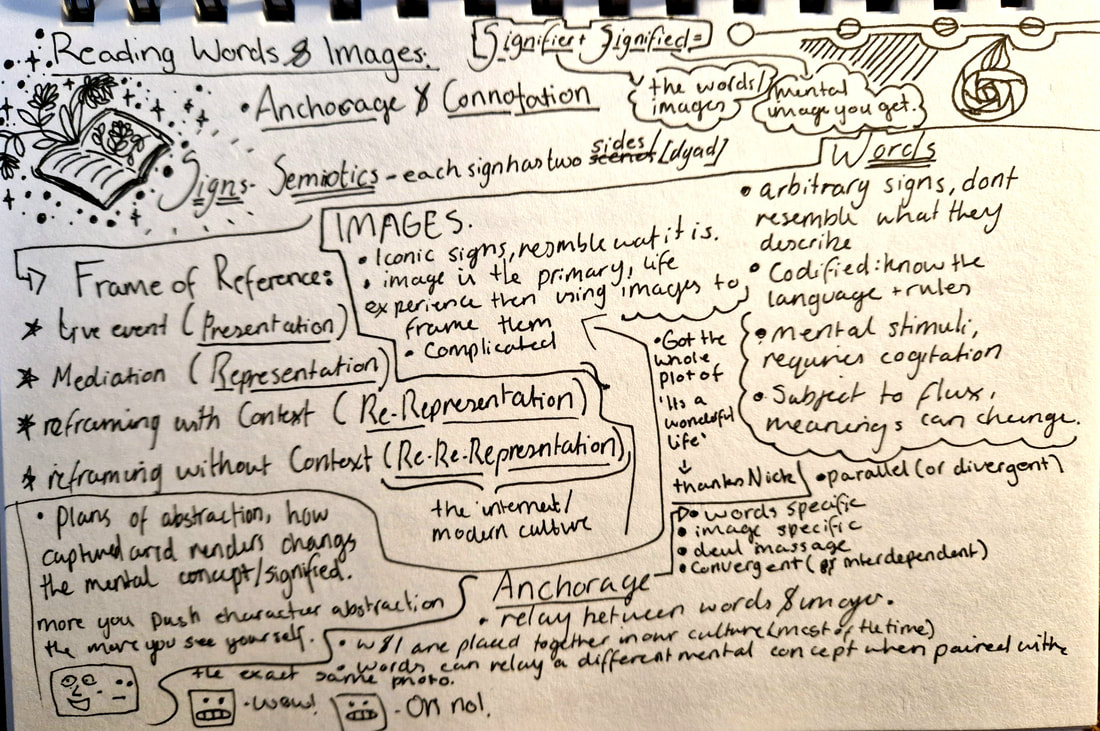 Reading Words & Images.
[Signifier + Signified =]
the words/
images
mental
image you get.
• Anchorage & Connotation
Signs - Semiotics - each sign has two sides [dyad]
Words
• arbitrary signs, dont
resemble what they
describe
• Codified: know the
language + rules
• mental stimuli,
requries cogitation
• Subject to flux,
meanings can change.
IMAGES.
• Iconic signs, resmble wat it is.
• image is the primary, life
experience then using images to
frame them
• Complicated
Frame of Reference:
* live event (Presentation)
* Mediation (Representation)
* reframing with Context (Re-Representation)
* reframing without Context (Re-Re-Representation)
the internet/
modern culture
• Got the
whole
plot of
'Its a
wonderful
life'
↓
thanks Nick
• parallel (or divergent)
• words specific
• image specific
• duel massage
• Convergent (or interdependent)
• plans of abstraction, how
captured and renders changes
the mental concept/signified.
more you push character abstraction
the more you see yourself.
Anchorage
• relay between words & images.
• w&I are placed together in our culture (most of the time)
• words can relay a different mental concept when paired with
the exact same photo.
- wow!
- Oh no!